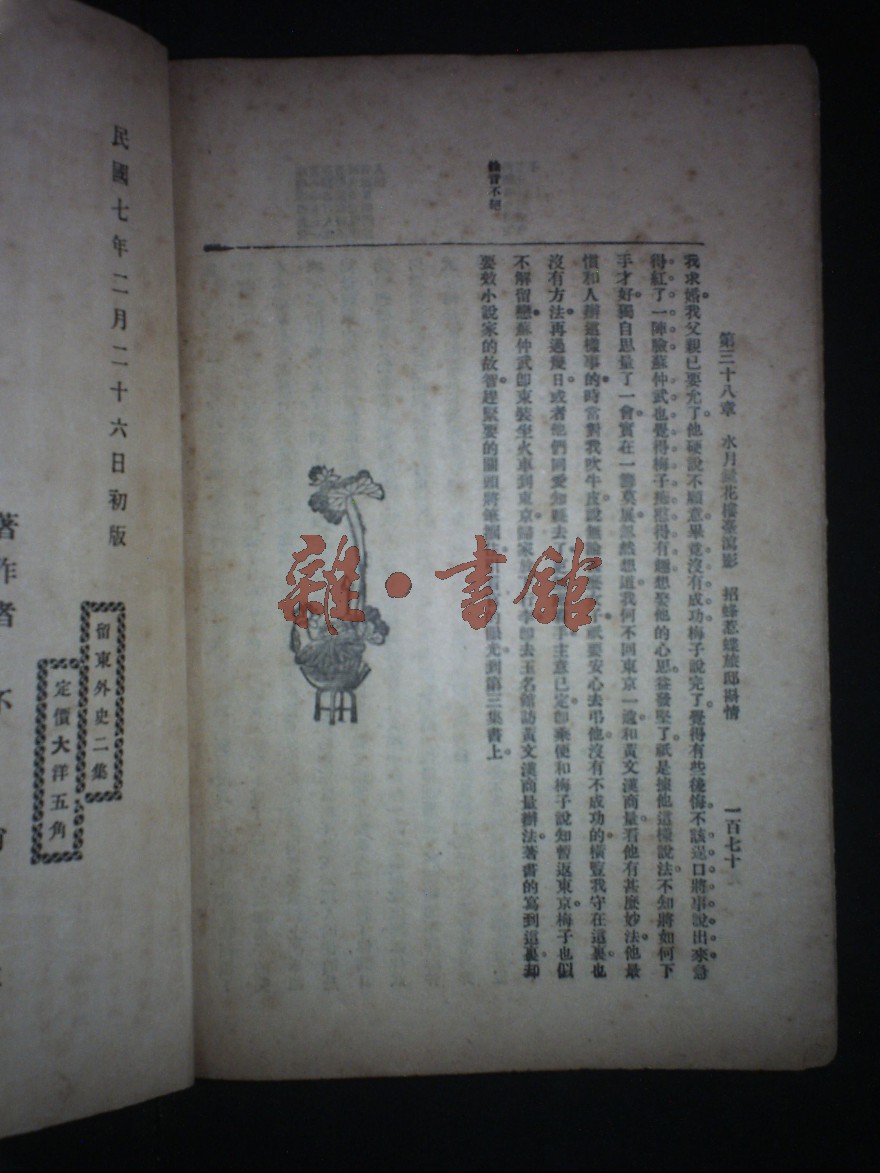 第三十八章　水月鏡花樓臺瀉影　招蜂惹蝶旅邸斷情
一百七十
我求婚我父親已要允了他硬說不願意畢竟沒有成功梅子說完了覺得有些後悔不該逞口將事說出來急
得紅了一陣臉蘇仲武也覺得梅子憨得有趣想娶他的心思益發堅了祇是據他這樣說法不知將如何下
手才好獨自思量了一會實在一籌莫展忽然想道我何不回東京一趟和黃文漢商量看他有甚麼妙法他最
慣和人辦這樣事的時當對我吹牛皮說無論 祇要安心去弔他沒有不成功的橫豎我守在這裏也
沒有方法再過幾日或者他們回愛知縣去了 主意已定卽乘便和梅子說知暫返東京梅子也似
不解留戀蘇仲武卽束裝坐火車到東京歸家 卽去玉名館訪黃文漢商量辦法著書的寫到這裏却
要效小說家的故智趕緊要的關頭將筆擱 光到第三集書上
餘音不絕
民國七年二月二十六日初版
留東外史二集
定價大洋五角
著作者　不
雜·書館